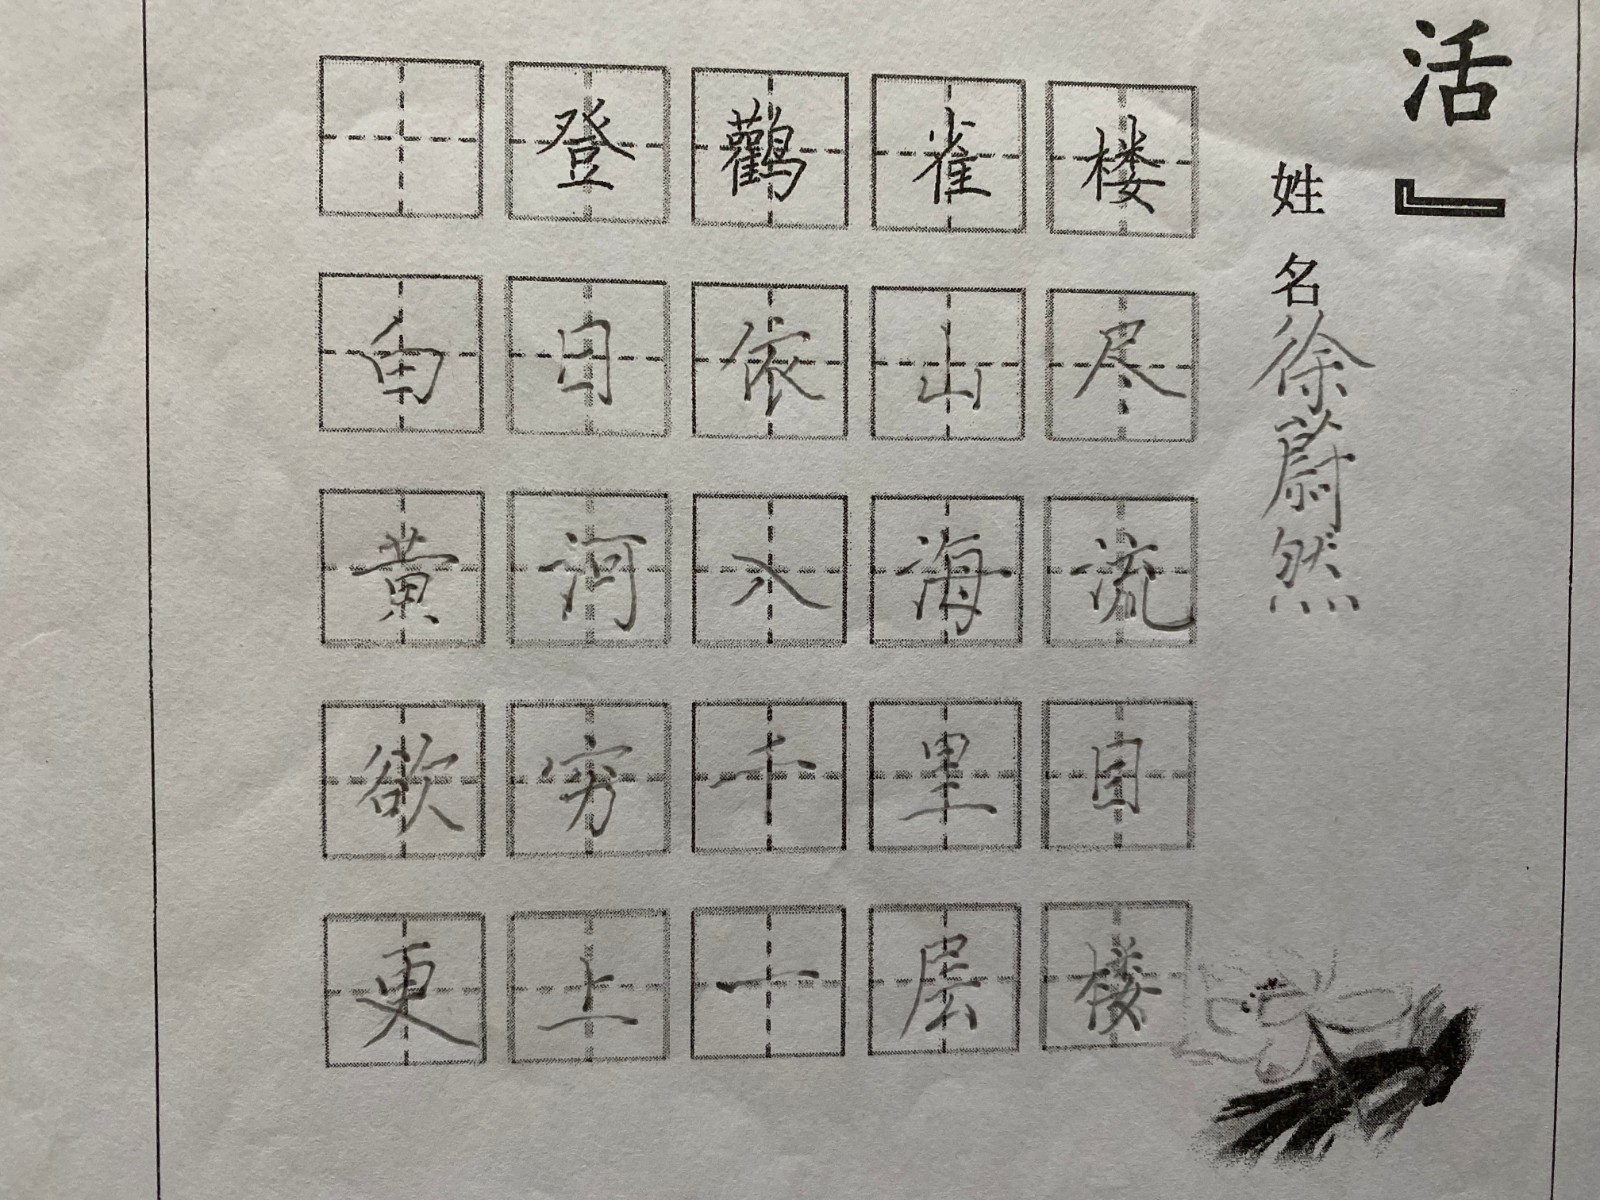 活』
姓名徐蔚然
登鹳雀楼
白日依山尽
黄河入海流
欲穷千里目
更上一层楼